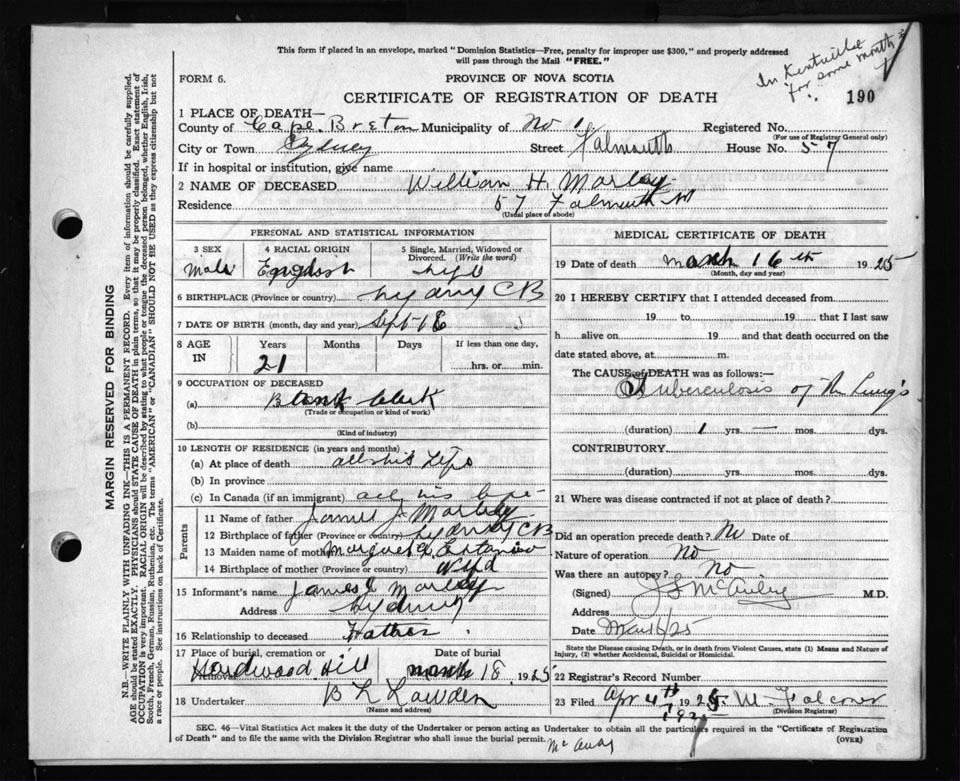 This form if placed in an envelope, marked "Dominion Statistics—Free, penalty for improper use $300," and properly addressed
will pass through the Mail "FREE."
In Kentville
for some months
FORM 6.
PROVINCE OF NOVA SCOTIA
CERTIFICATE OF REGISTRATION OF DEATH
190
1 PLACE OF DEATH—
County of Cape Breton Municipality of No 1 Registered No.
(For use of Registrar General only)
City or Town Sydney Street Falmouth House No. 57
If in hospital or institution, give name
2 NAME OF DECEASED William H. Marley
Residence 57 Falmouth St
(Usual place of abode)
PERSONAL AND STATISTICAL INFORMATION
3 SEX
Male
4 RACIAL ORIGIN
English
5 Single, Married, Widowed or Divorced. (Write the word)
6 BIRTHPLACE (Province or country) Sydney CB
7 DATE OF BIRTH (month, day and year) Sept 18
8 AGE IN
Years
21
Months
Days
If less than one day,
hrs. or min.
9 OCCUPATION OF DECEASED
(a) Bank Clerk
(Trade or occupation or kind of work)
(b)
(Kind of industry)
10 LENGTH OF RESIDENCE (in years and months)
(a) At place of death all his Life
(b) In province
(c) In Canada (if an immigrant) all his life
Parents
11 Name of father James J. Marley
12 Birthplace of father (Province or country) Sydney CB
13 Maiden name of mother Margaret
14 Birthplace of mother (Province or country) Nfld
15 Informant's name James J Marley
Address Sydney
16 Relationship to deceased Father
17 Place of burial, cremation or removal
Hardwood Hill
Date of burial
March 18 1925
18 Undertaker B L Lawden
(Name and address)
MEDICAL CERTIFICATE OF DEATH
19 Date of death March 16th 1925
(Month, day and year)
20 I HEREBY CERTIFY that I attended deceased from
19 to 19 that I last saw
h alive on 19 and that death occurred on the
date stated above, at m.
The CAUSE of DEATH was as follows:—
Tuberculosis of The Lungs
(duration) 1 yrs. — mos. dys.
CONTRIBUTORY.
(duration) yrs. mos. dys.
21 Where was disease contracted if not at place of death?
Did an operation precede death? No Date of
Nature of operation No
Was there an autopsy? No
(Signed) M.D.
Address
Date Mar 16/25
State the Disease causing Death, or in death from Violent Causes, state (1) Means and Nature of
Injury, (2) whether Accidental, Suicidal or Homicidal.
22 Registrar's Record Number
23 Filed Apr 4th 1925. M. Falconer
1925
(Division Registrar)
SEC. 46—Vital Statistics Act makes it the duty of the Undertaker or person acting as Undertaker to obtain all the particulars required in the "Certificate of Registration
of Death" and to file the same with the Division Registrar who shall issue the burial permit.
(OVER)
MARGIN RESERVED FOR BINDING
N.B.—WRITE PLAINLY WITH UNFADING INK—THIS IS A PERMANENT RECORD. Every item of information should be carefully supplied.
AGE should be stated EXACTLY. PHYSICIANS should STATE CAUSE OF DEATH in plain terms, so that it may be properly classified. Exact statement of
OCCUPATION is very important. RACIAL ORIGIN will be described by stating to what people or tongue the deceased person belonged, whether English, Irish,
Scotch, French, German, Russian, Ruthenian, etc. The terms "AMERICAN" or "CANADIAN" SHOULD NOT BE USED as they express citizenship but not
a race or people. See instructions on back of Certificate.